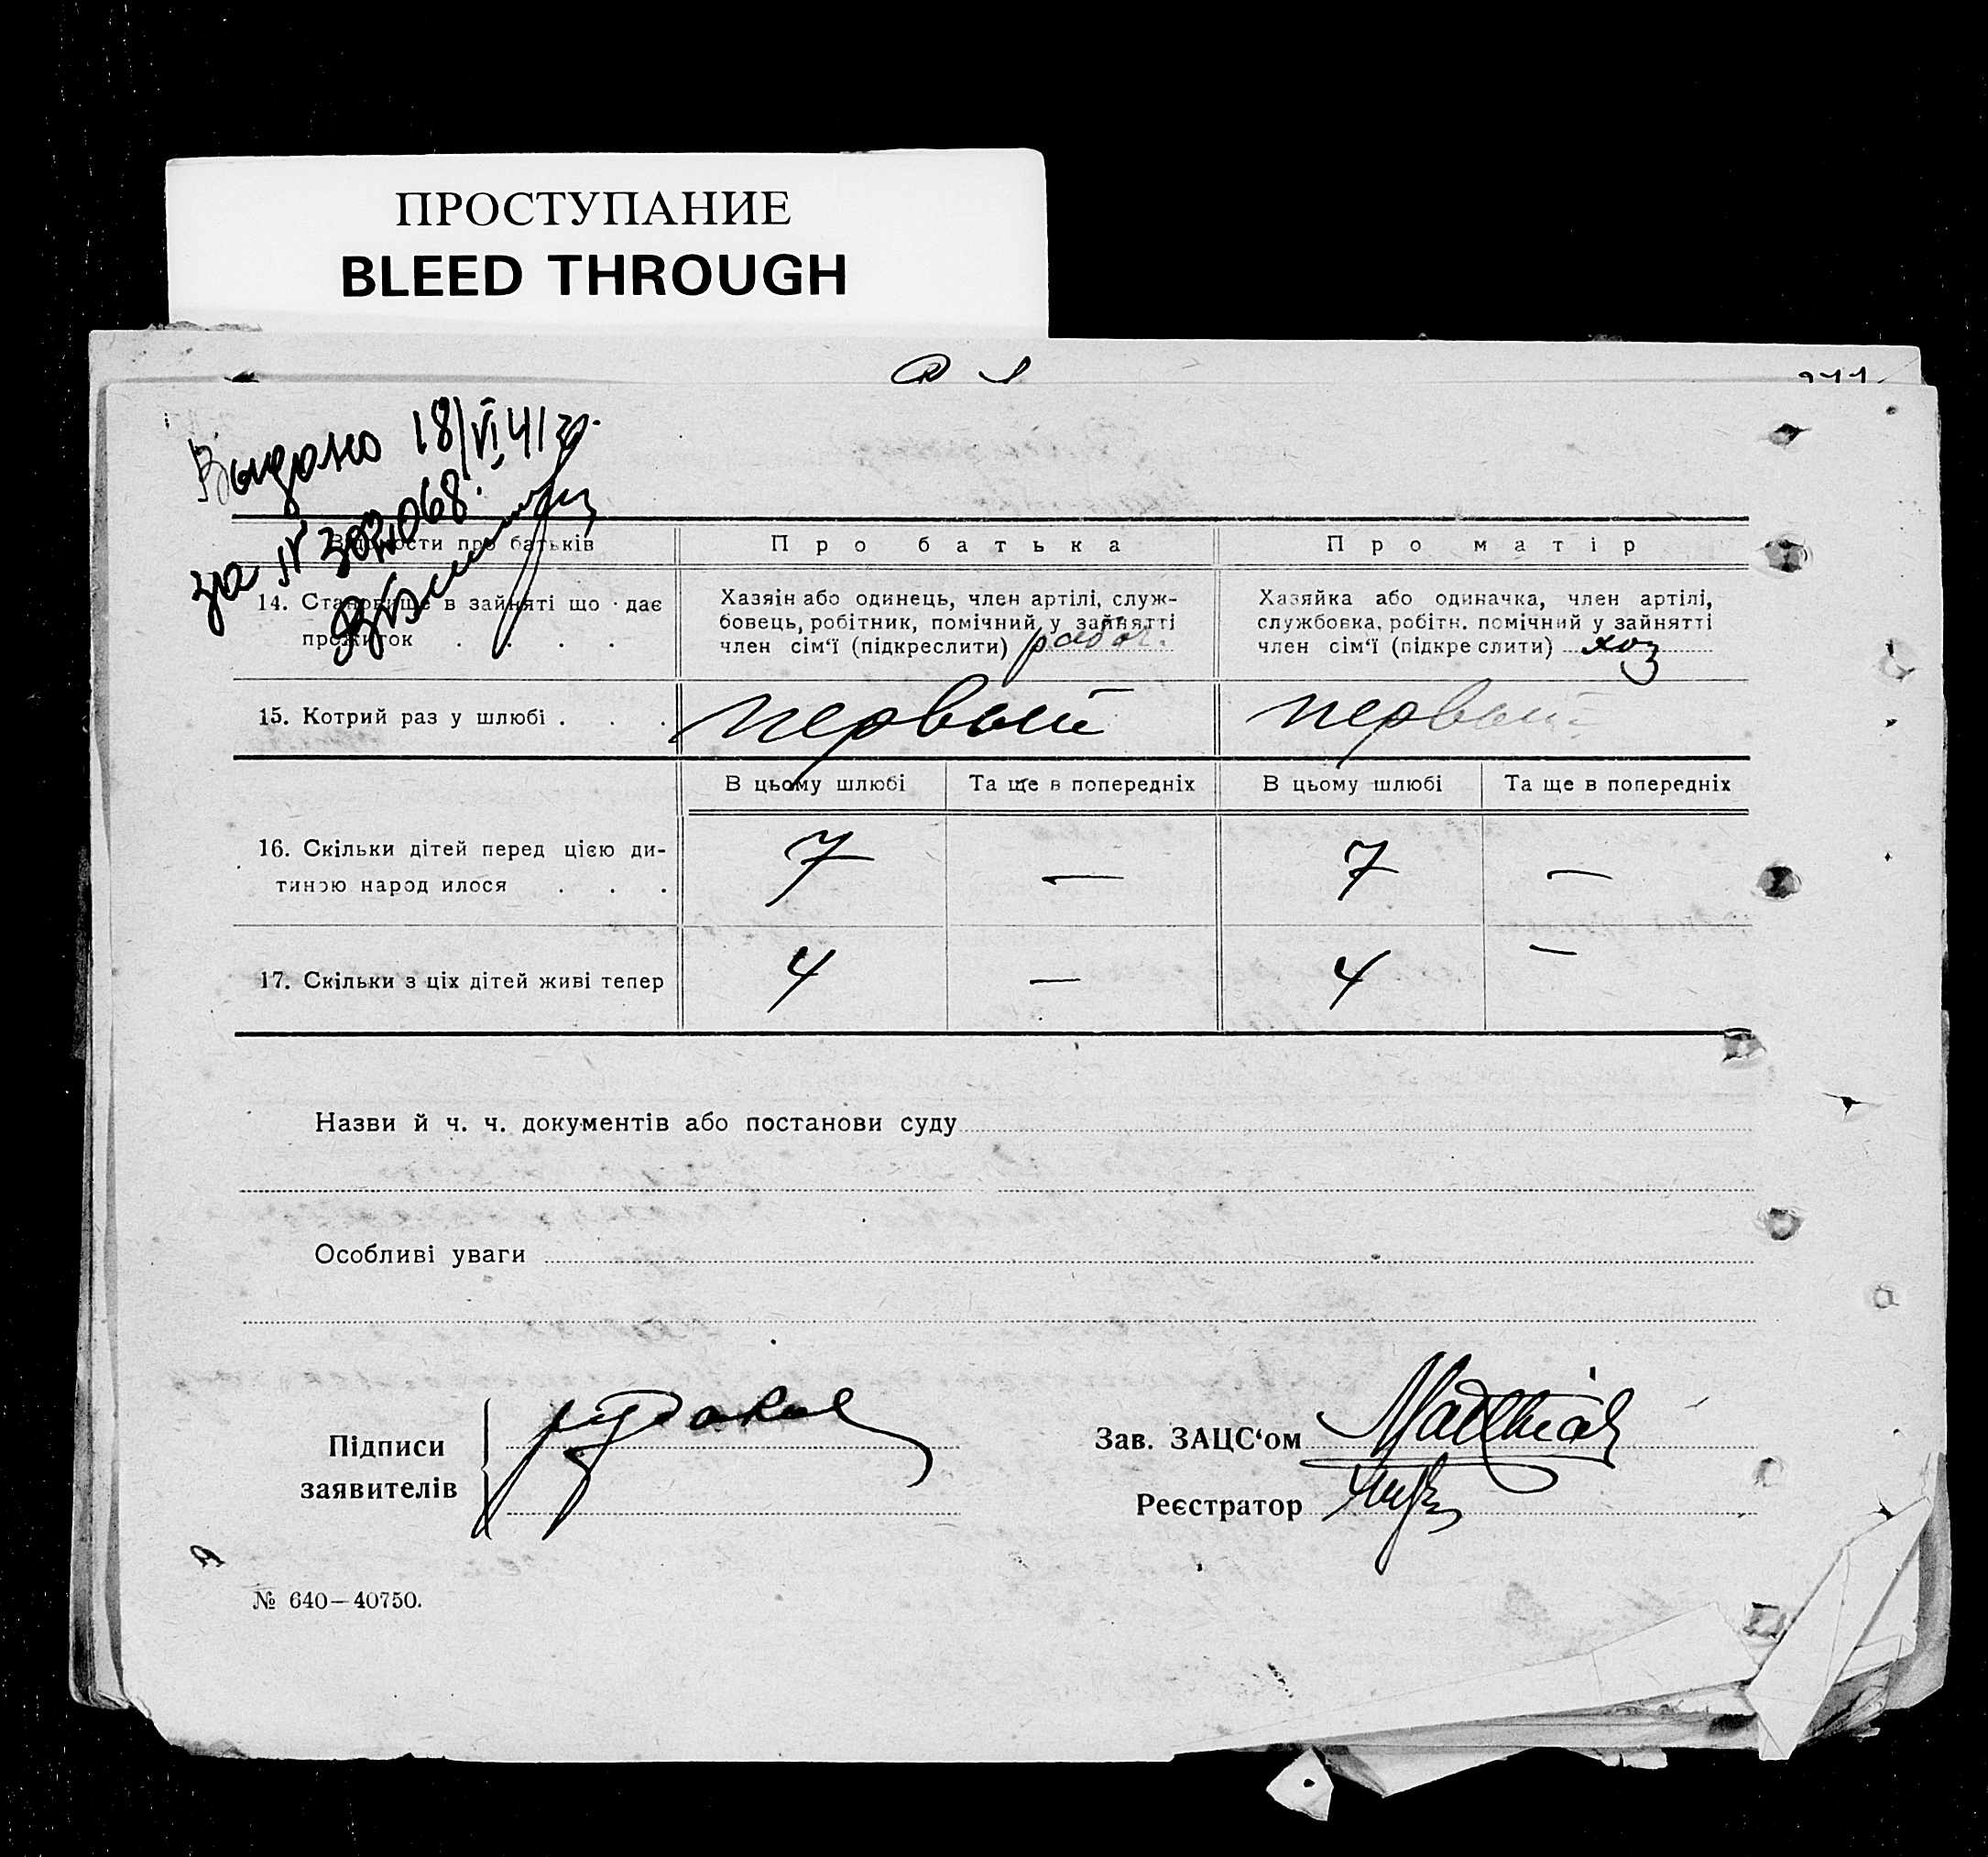 ПРОСТУПАНИЕ
BLEED THROUGH
Выдано 18/VI 41 г.
за №
Відомости про батьків
Про батька
Про матір
14. Становище в зайняті що дає
прожиток . . . .
Хазяін або одинець, член артілі, служ-
бовець, робітник, помічний у зайнятті
член сім‘ї (підкреслити) рабоч.
Хазяйка або одиначка, член артілі,
службовка, робітн. помічний у зайнятті
член сім‘ї (підкреслити) хоз
15. Котрий раз у шлюбі . . .
первый
первый
В цьому шлюбі
Та ще в попередніх
В цьому шлюбі
Та ще в попередніх
16. Скільки дітей перед цією ди-
тиною народилося . . .
7
—
7
—
17. Скільки з ціх дітей живі тепер
4
—
4
—
Назви й ч. ч. документів або постанови суду
Особливі уваги
Підписи
заявителів
Зав. ЗАЦС‘ом
Реєстратор
№ 640—40750.